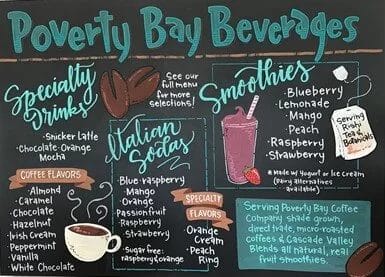 Poverty Bay Beverages
Specialty
Drinks
·Snicker Latte
·Chocolate·Orange
Mocha
COFFEE FLAVORS
·Almond
·Caramel
·Chocolate
·Hazelnut
·Irish Cream
·Peppermint
·Vanilla
·White Chocolate
See our
full menu
for more
selections!
Italian
Sodas
·Blue·raspberry
·Mango
·Orange
·Passionfruit
·Raspberry
·Strawberry
·Sugar free:
raspberry,orange
SPECIALTY
FLAVORS
·Orange
Cream
·Peach
Ring
Smoothies
·Blueberry
·Lemonade
·Mango
·Peach
·Raspberry
·Strawberry
*Made w/Yogurt or Ice Cream
(Dairy alternatives
available)
Serving
Rishi
Tea &
Botanicals
Serving Poverty Bay Coffee
Company shade grown,
direct trade, micro-roasted
coffees & Cascade Valley
Blends all natural, real
fruit smoothies.